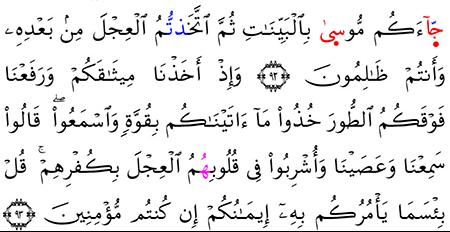 جَآءَكُم مُّوسىٰ بِالْبَيِّنَـٰتِ ثُمَّ اتَّخَذتُّمُ الْعِجْلَ مِنۢ بَعْدِهِۦ
وَأَنتُمْ ظَـٰلِمُونَ ٩٢ وَإِذْ أَخَذْنَا مِيثَـٰقَكُمْ وَرَفَعْنَا
فَوْقَكُمُ الطُّورَ خُذُوا۟ مَآ ءَاتَيْنَـٰكُم بِقُوَّةٍ وَاسْمَعُوا۟ ۖ قَالُوا۟
سَمِعْنَا وَعَصَيْنَا وَأُشْرِبُوا۟ فِى قُلُوبِهُمُ الْعِجْلَ بِكُفْرِهِمْ ۚ قُلْ
بِئْسَمَا يَأْمُرُكُم بِهِۦٓ إِيمَـٰنُكُمْ إِن كُنتُم مُّؤْمِنِينَ ٩٣